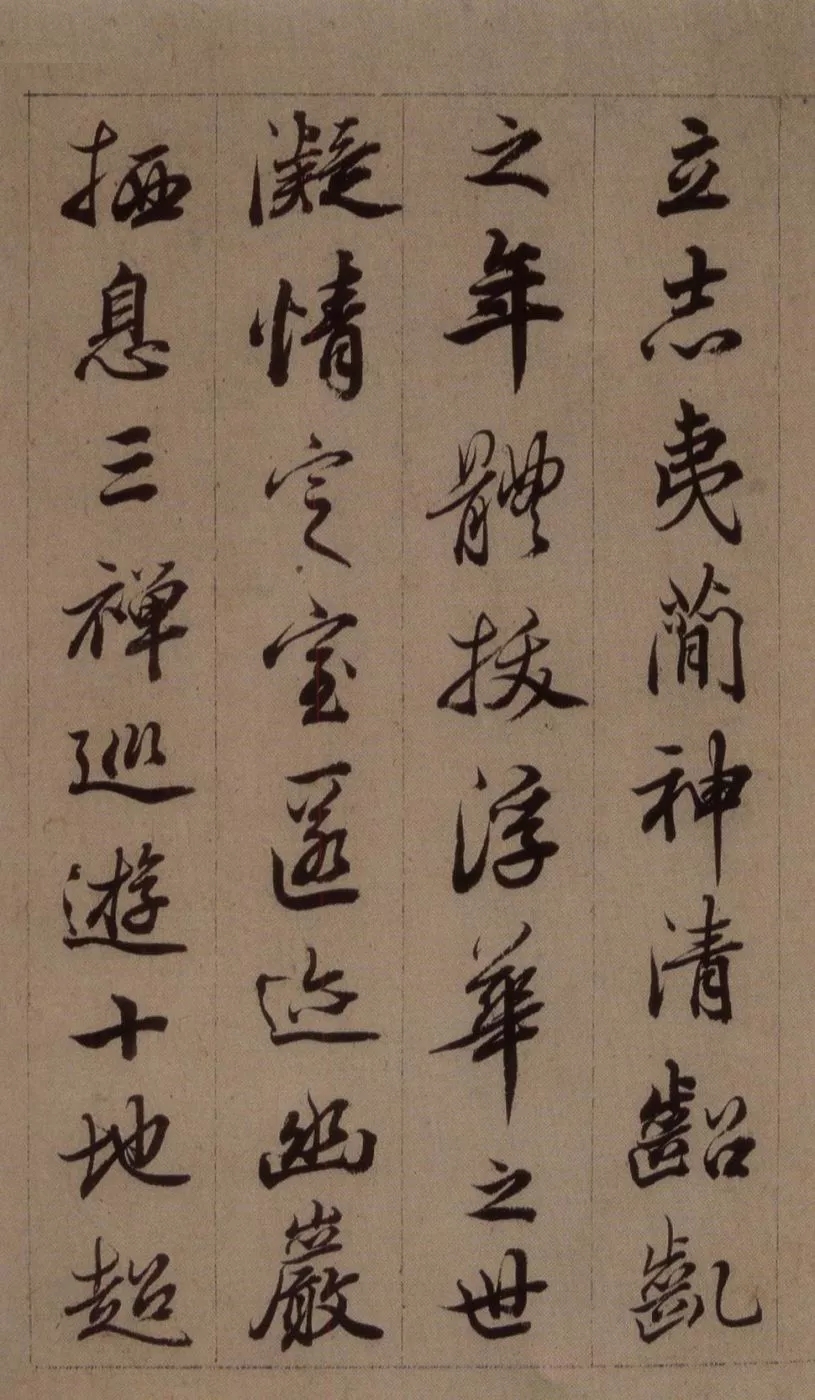 立志夷簡神清齠齔
之年體拔浮華之世
凝情定室匿迹幽巖
栖息三禪巡遊十地超